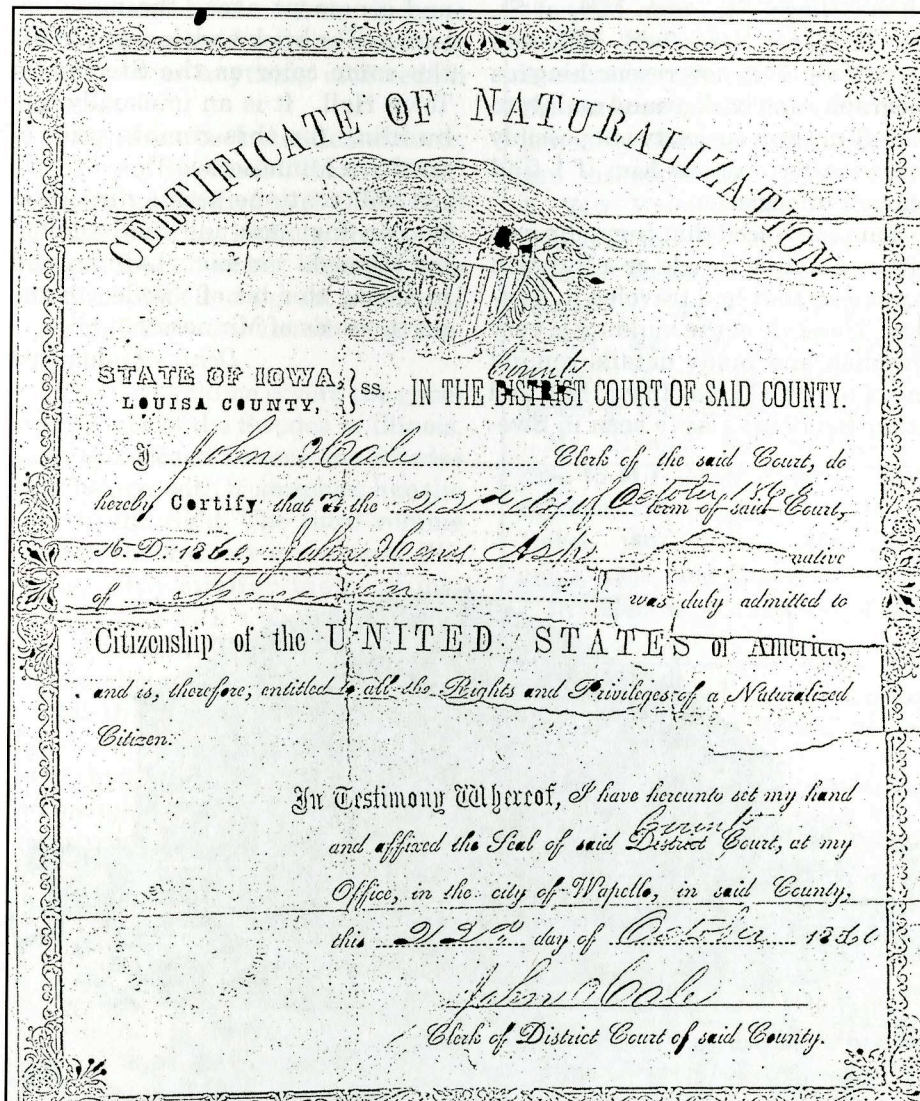 CERTIFICATE OF NATURALIZATION.
STATE OF IOWA, } ss.
LOUISA COUNTY,
County
IN THE DISTRICT COURT OF SAID COUNTY.
I John Hale Clerk of the said Court, do
hereby Certify that at the 22nd day of October 1868 term of said Court,
A. D. 186 John Ash native
of was duly admitted to
Citizenship of the UNITED STATES of America,
and is, therefore, entitled to all the Rights and Privileges of a Naturalized
Citizen.
In Testimony Whereof, I have hereunto set my hand
County
and affixed the Seal of said District Court, at my
Office, in the city of Wapello, in said County,
this 22nd day of October 186
John Hale
Clerk of District Court of said County.